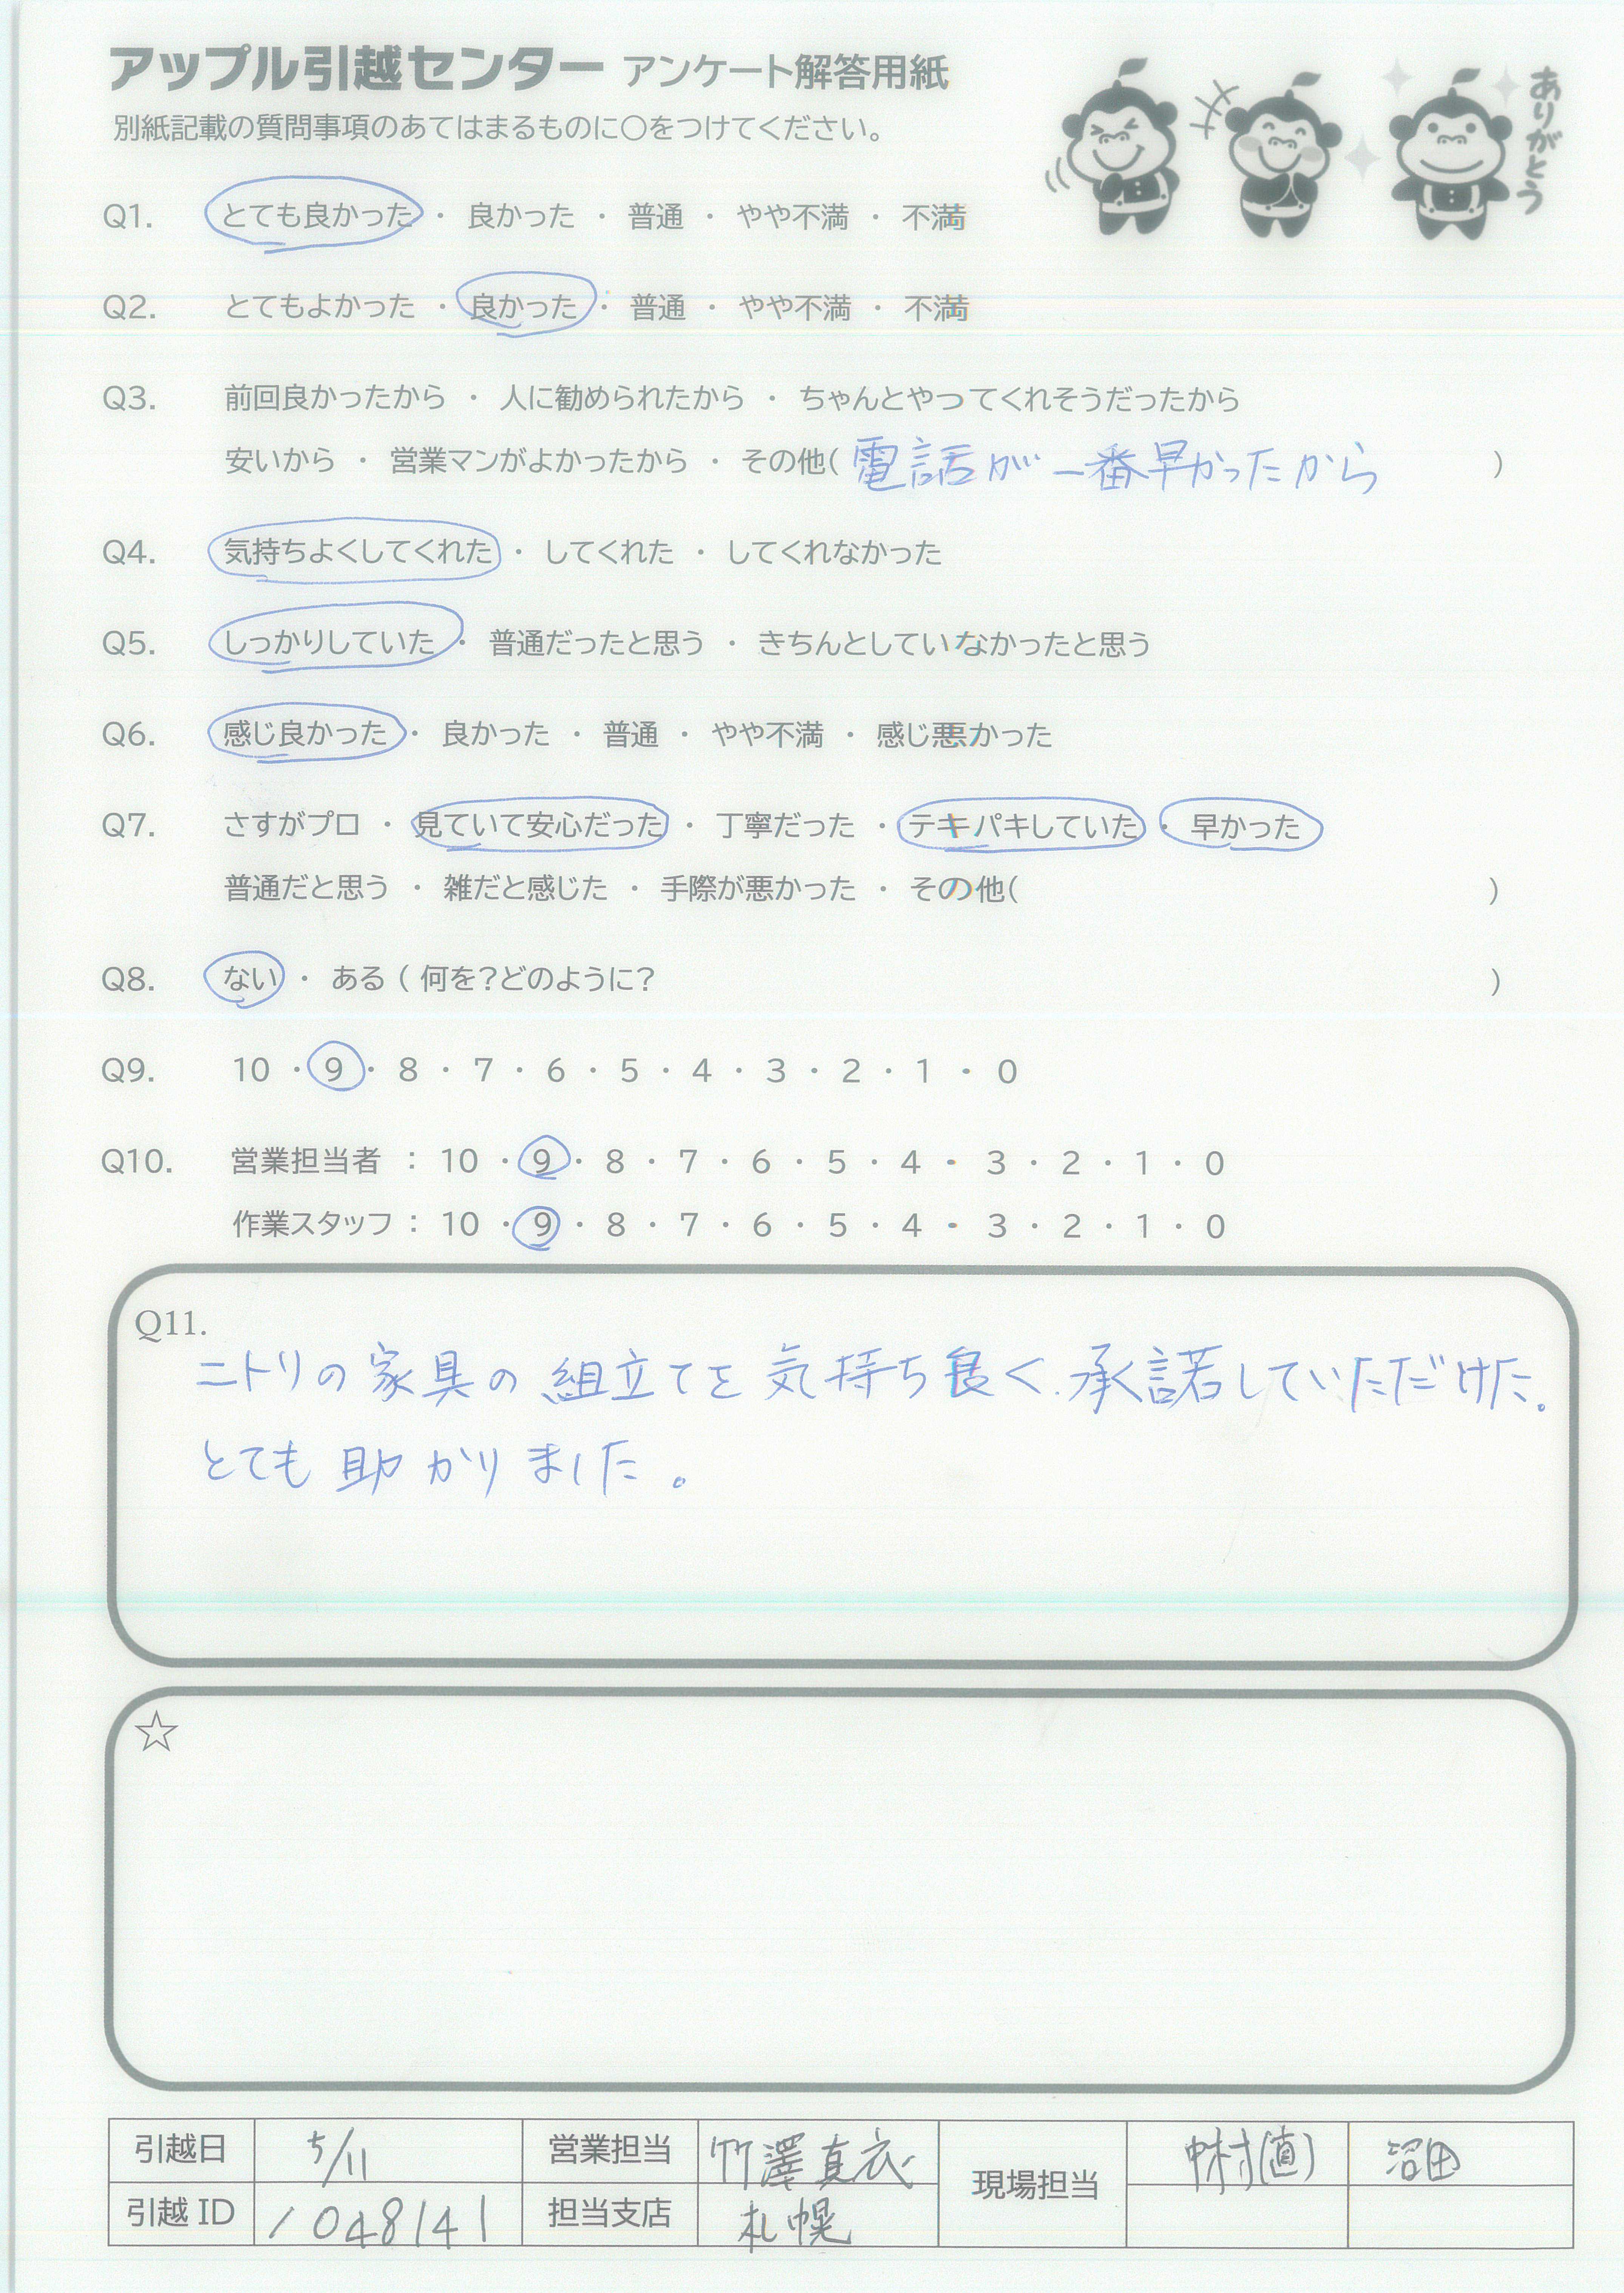 アップル引越センター アンケート解答用紙
ありがとう
別紙記載の質問事項のあてはまるものに○をつけてください。
Q1. とても良かった ・ 良かった ・ 普通 ・ やや不満 ・ 不満
Q2. とてもよかった ・ 良かった ・ 普通 ・ やや不満 ・ 不満
Q3. 前回良かったから ・ 人に勧められたから ・ ちゃんとやってくれそうだったから
安いから ・ 営業マンがよかったから ・ その他( 電話が一番早かったから )
Q4. 気持ちよくしてくれた ・ してくれた ・ してくれなかった
Q5. しっかりしていた ・ 普通だったと思う ・ きちんとしていなかったと思う
Q6. 感じ良かった ・ 良かった ・ 普通 ・ やや不満 ・ 感じ悪かった
Q7. さすがプロ ・ 見ていて安心だった ・ 丁寧だった ・ テキパキしていた ・ 早かった
普通だと思う ・ 雑だと感じた ・ 手際が悪かった ・ その他( )
Q8. ない ・ ある ( 何を?どのように? )
Q9. 10 ・ 9 ・ 8 ・ 7 ・ 6 ・ 5 ・ 4 ・ 3 ・ 2 ・ 1 ・ 0
Q10. 営業担当者 : 10 ・ 9 ・ 8 ・ 7 ・ 6 ・ 5 ・ 4 ・ 3 ・ 2 ・ 1 ・ 0
作業スタッフ : 10 ・ 9 ・ 8 ・ 7 ・ 6 ・ 5 ・ 4 ・ 3 ・ 2 ・ 1 ・ 0
Q11.
ニトリの家具の組立てを気持ち良く承諾していただけた。
とても助かりました。
☆
引越日 5/11 営業担当 竹澤真衣 現場担当 中村(直) 沼田
引越ID 1048141 担当支店 札幌